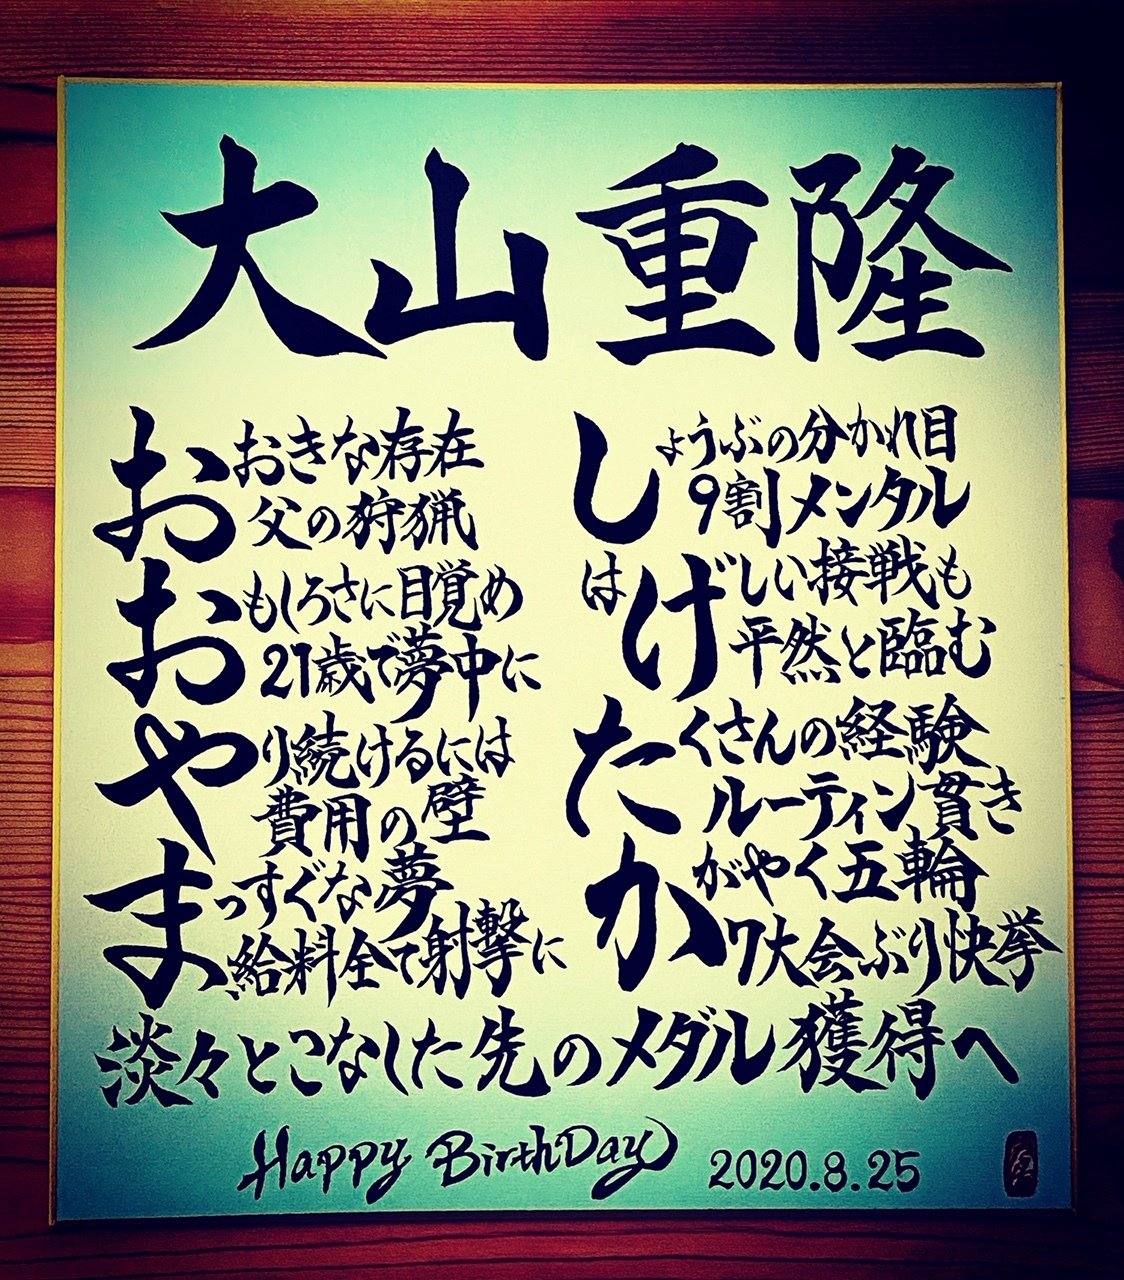 大山重隆
おおきな存在
父の狩猟
おもしろさに目覚め
21歳で夢中に
やり続けるには
費用の壁
まっすぐな夢
給料全て射撃に
しょうぶの分かれ目
9割メンタル
はげしい接戦も
平然と臨む
たくさんの経験
ルーティン貫き
かがやく五輪
7大会ぶり快挙
淡々とこなした先のメダル獲得へ
Happy BirthDay 2020.8.25